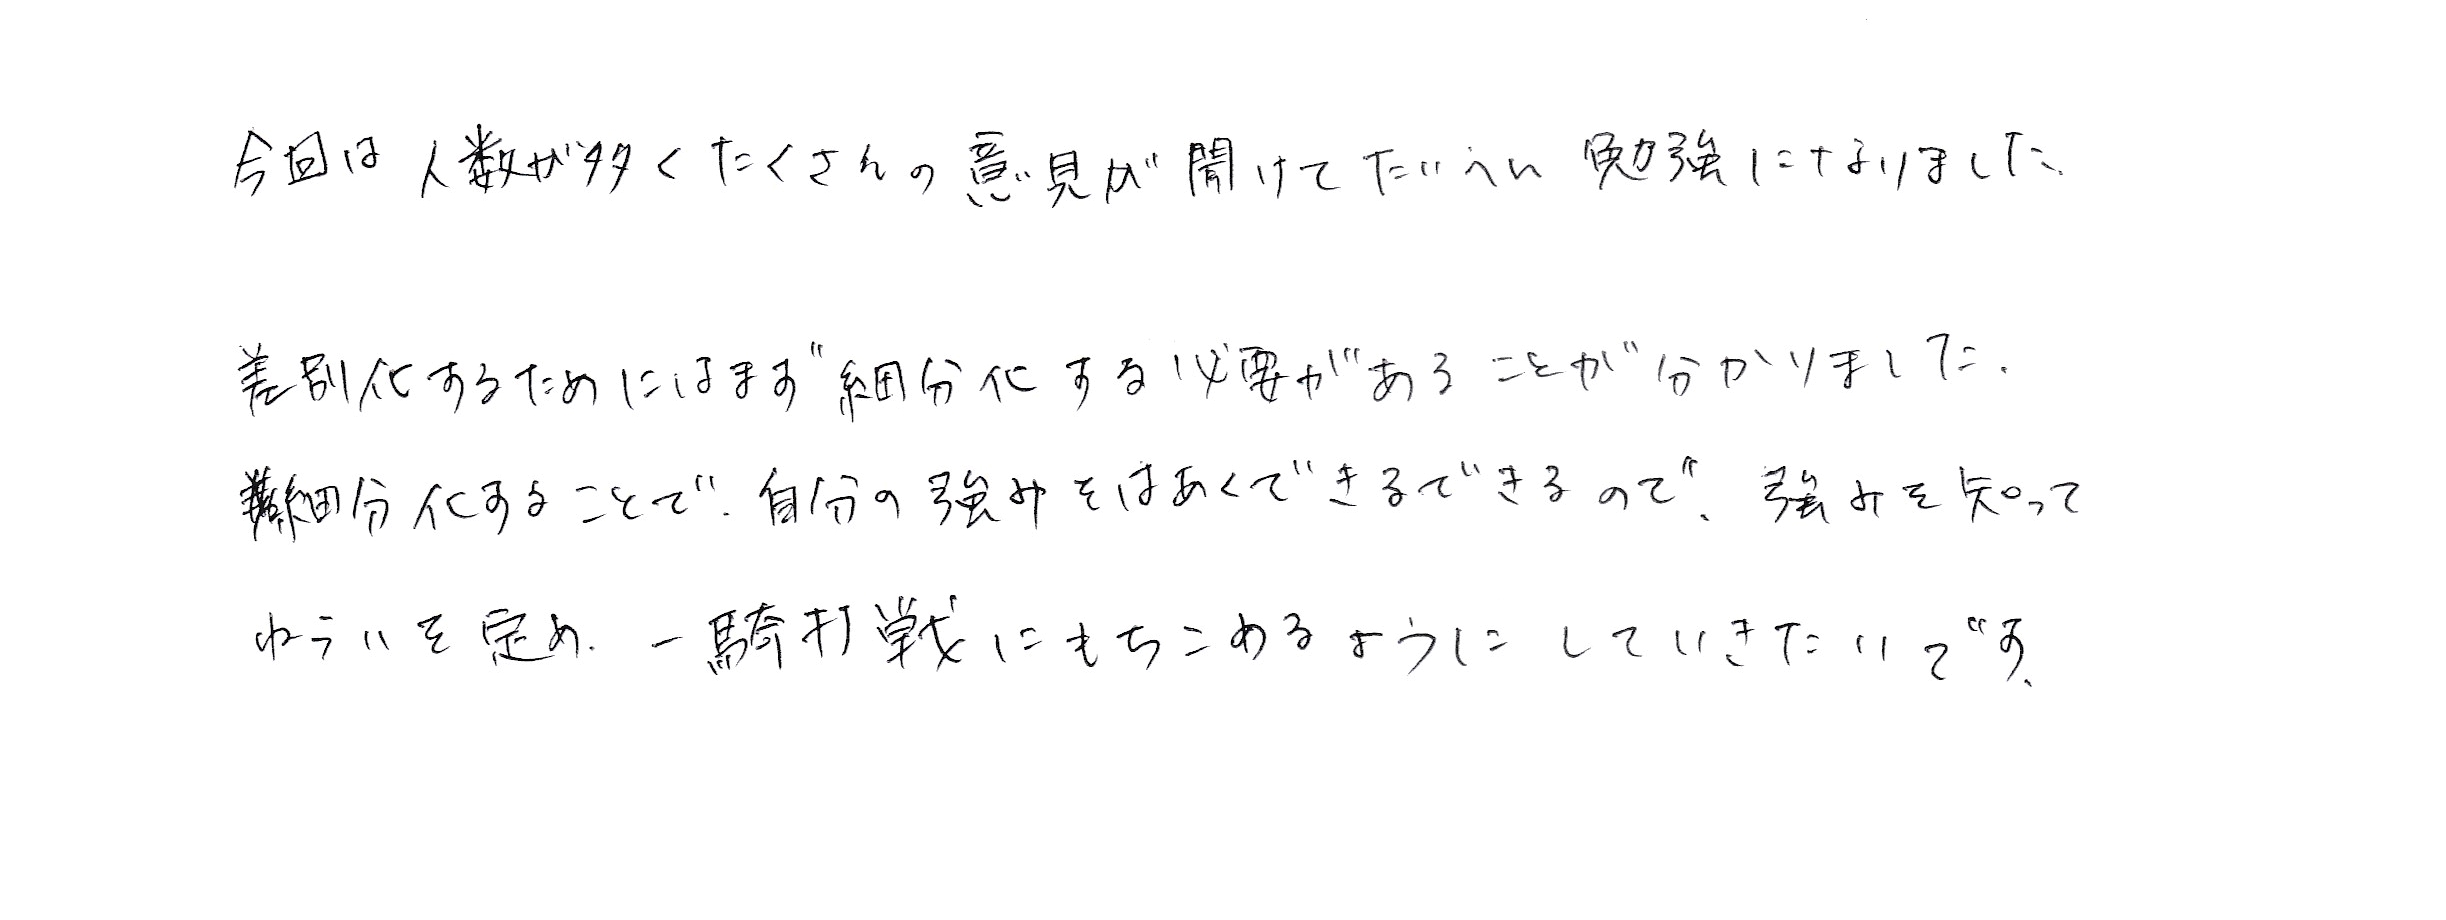 今回は人数が多くたくさんの意見が聞けてたいへん勉強になりました、
差別化するためにはまず細分化する必要があることが分かりました.
細分化することで、自分の強みをはあくできるできるので、強みを知って
ねらいを定め、一騎打戦にもちこめるようにしていきたいです、